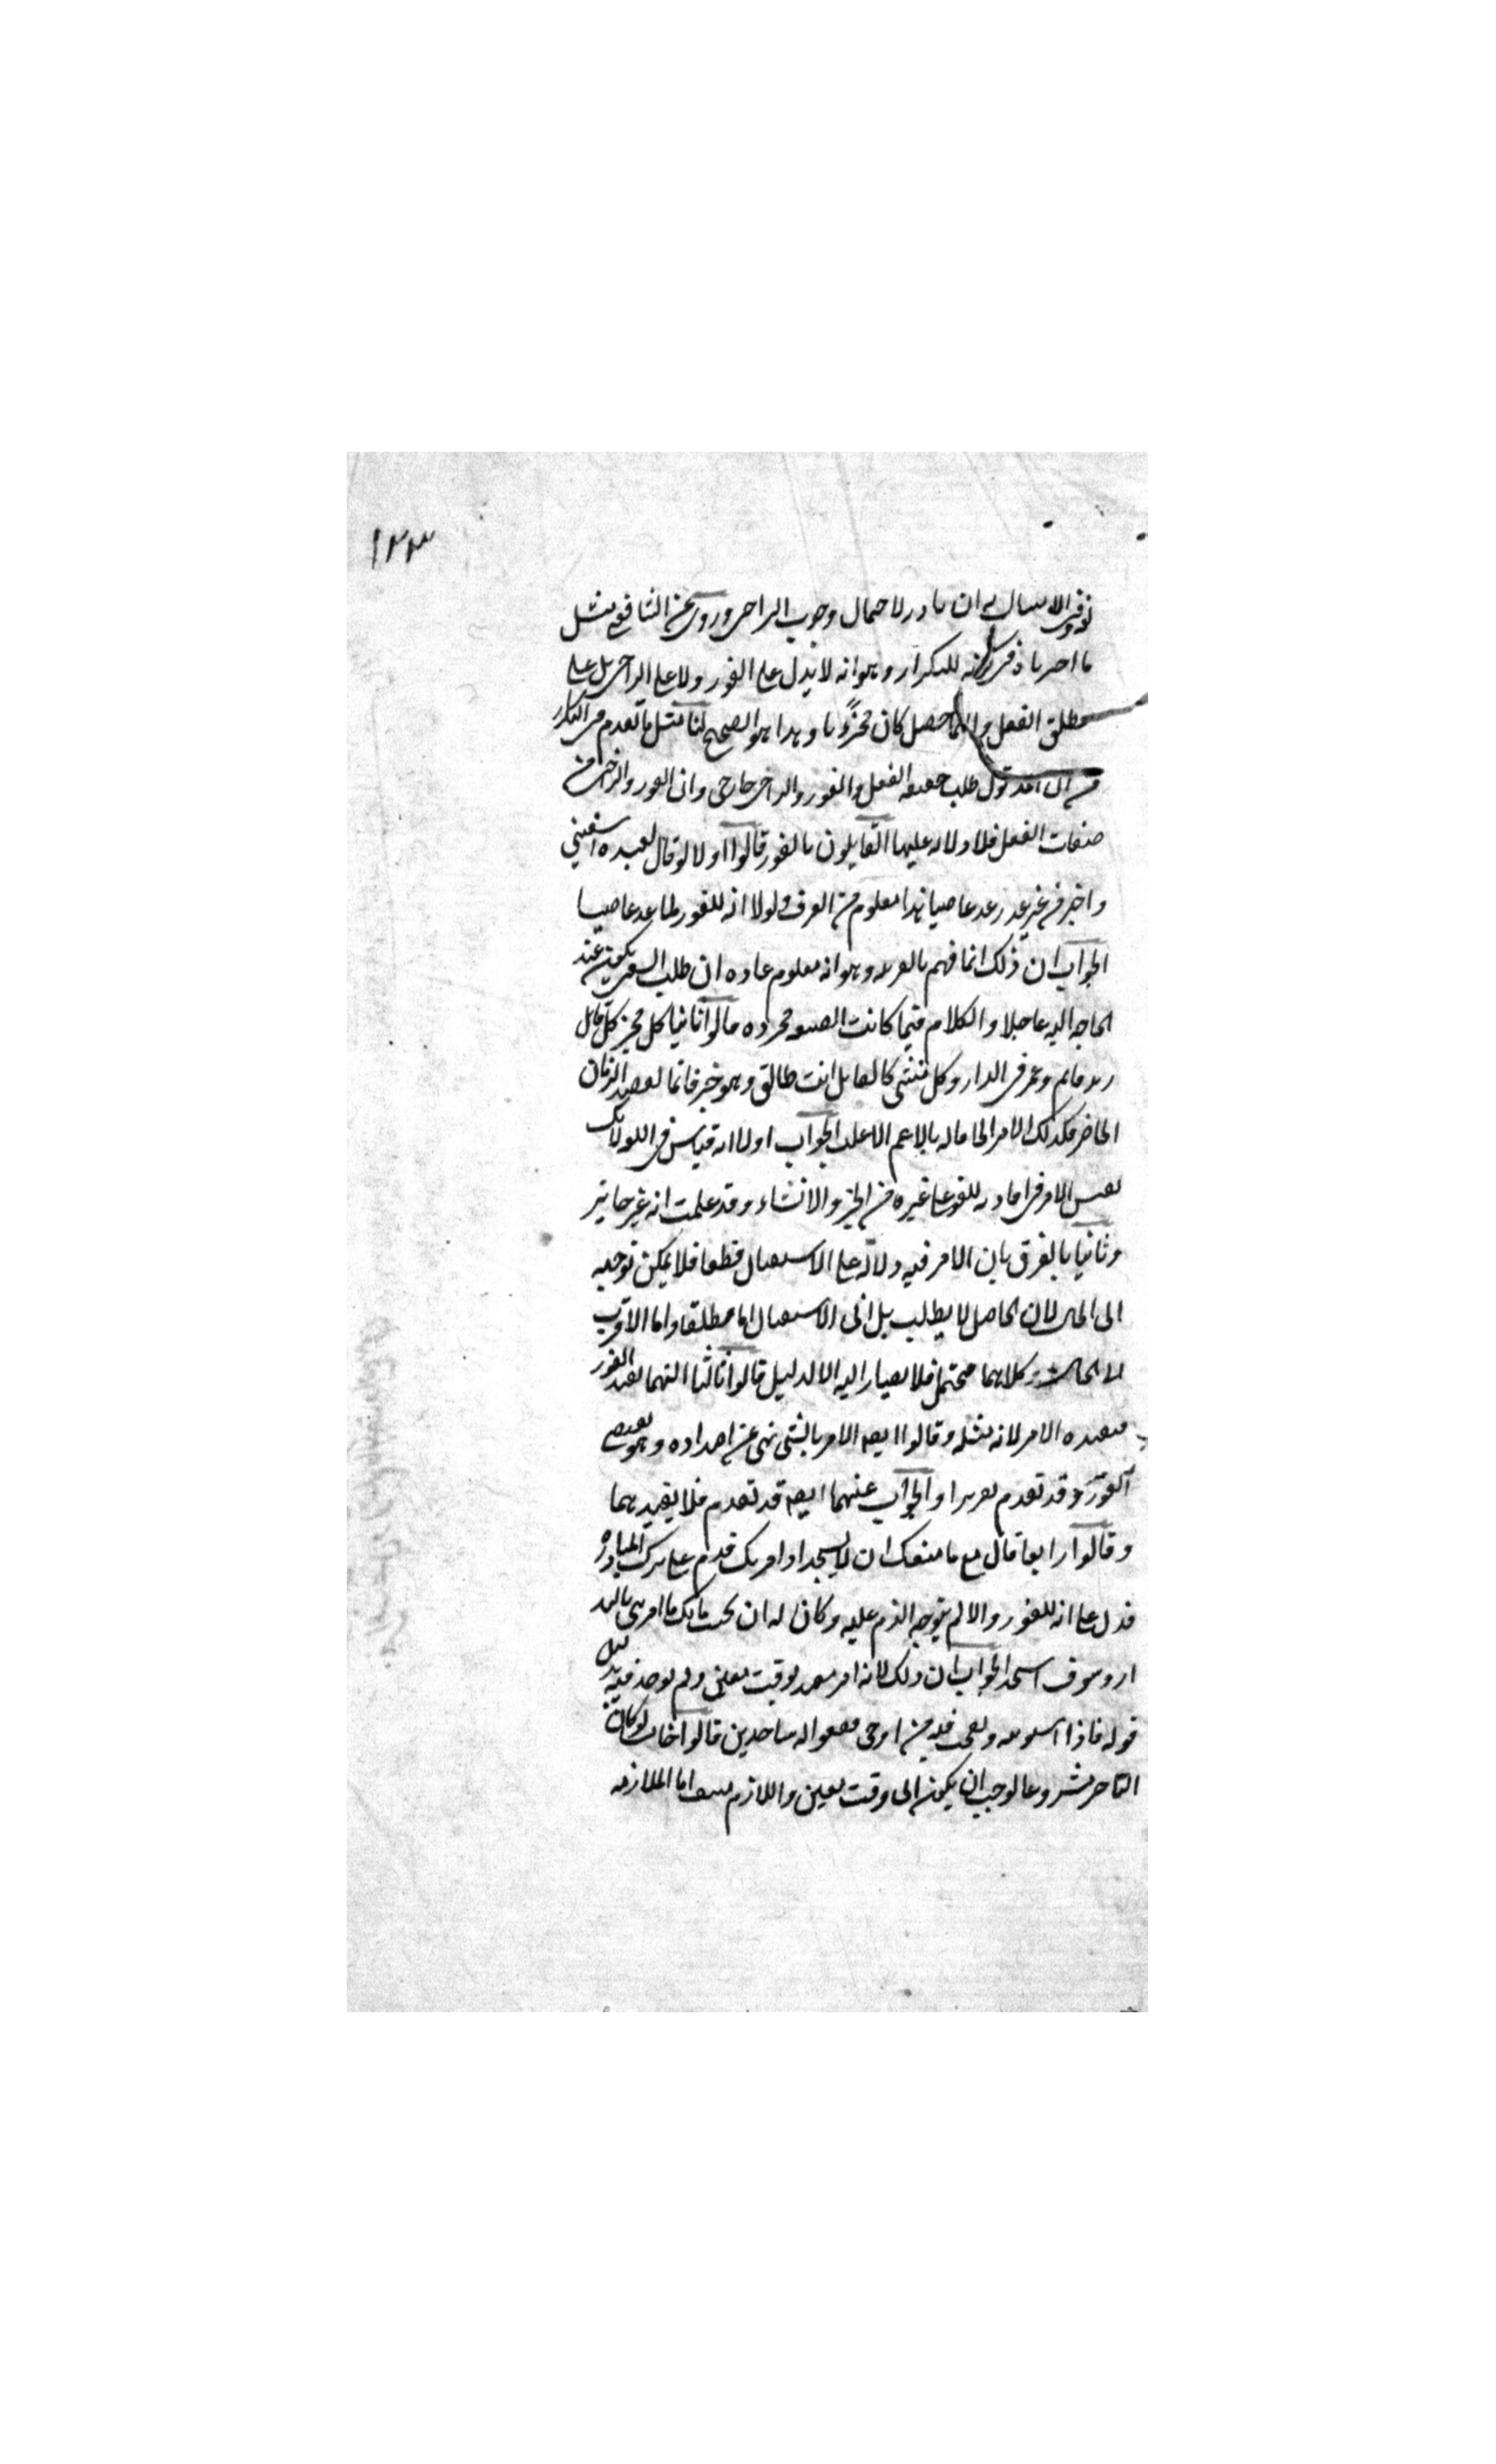 ١٢٣
توقف الامتثال به ان بادر لاحتمال وجوب التراخي وروي عن الشافعي مثل
ما اختر ناه في للتكرار وهو انه لا يدل على الفور ولا على التراخي بل على
مطلق الفعل وايهما حصل كان مجزئا وهذا هو الصحيح لنا مثل ما تقدم في التكرار
من ان طلب حقيقة الفعل والفور والتراخي خارجي وان الفور والتراخي من
صفات الفعل فلا دلالة عليها القايلون بالفور قالوا اولا لو قال لعبده اسقيني
واخر من غير عذر عد عاصيا هذا معلوم من العرف ولولا انه للفور لما عد عاصيا
الجواب ان ذلك انما فهم بالقرينة وهو انه معلوم عادة ان طلب السقي يكون عند
الحاجة اليه عاجلا والكلام فيما كانت الصيغة مجردة قالوا ثانيا كل مخبر كالقائل
زيد قايم وعمرو في الدار وكل منشئ كالقايل انت طالق وهو حر فانما يقصد الزمان
الحاضر فكذلك الامر الحاقا له بالاعم الاغلب الجواب اولا انه قياس في اللغة لانك
تقيس الامر في افادته للفور على غيره من الخبر والانشاء وقد علمت انه غير جايز
وثانيا بالفرق بان الامر فيه دلالة على الاستقبال قطعا فلا يمكن توجيه
الى الحال لان الحاصل لا يطلب بل الى الاستقبال اما مطلقا واما الاقرب
الى الحال وكلاهما محتمل فلا يصار اليه الا لدليل قالوا ثالثا النهي يفيد الفور
فيفيده الامر لانه مثله وقالوا ايضا الامر بالشي نهي عن اضداده وهو يقتضي
الفور وقد تقدم تقريرا والجواب عنهما ايضا قد تقدم فلا يفيد بهما
وقالوا رابعا قال تع ما منعك ان لا تسجد اذ امرتك فذم على ترك المبادرة
فدل على انه للفور والا لم يتوجه الذم عليه وكان له ان يجيب بانك ما امرتني بالبدار
وسوف اسجد الجواب ان ذلك لانه امر مقيد بوقت معين ولم يوجد فيه بدليل
قوله فاذا سويته ونفخت فيه من روحي فقعوا له ساجدين قالوا خامسا لو كان
التاخير مشروعا لوجب ان يكون الى وقت معين واللازم منتف اما الملازمة